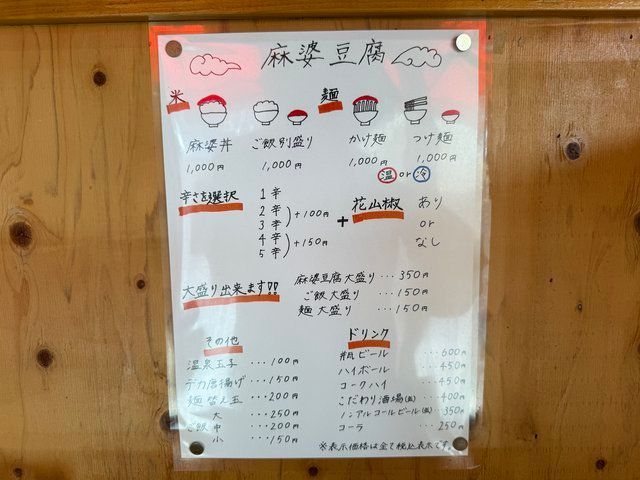 麻婆豆腐
米 麺
麻婆丼 ご飯別盛り かけ麺 つけ麺
1,000円 1,000円 1,000円 1,000円
温 or 冷
辛さを選択 1辛
2辛
3辛 +100円
4辛
5辛 +150円
+ 花山椒 あり
or
なし
大盛り出来ます!!
麻婆豆腐大盛り・・・350円
ご飯大盛り・・・150円
麺大盛り・・・150円
その他
温泉玉子・・・100円
デカ唐揚げ・・・150円
麺替え玉・・・200円
大・・・250円
ご飯 中・・・200円
小・・・150円
ドリンク
瓶ビール・・・600円
ハイボール・・・450円
コークハイ・・・450円
こだわり酒場(缶)・・・400円
ノンアルコールビール(缶)・・・350円
コーラ・・・250円
※表示価格は全て税込表示です。